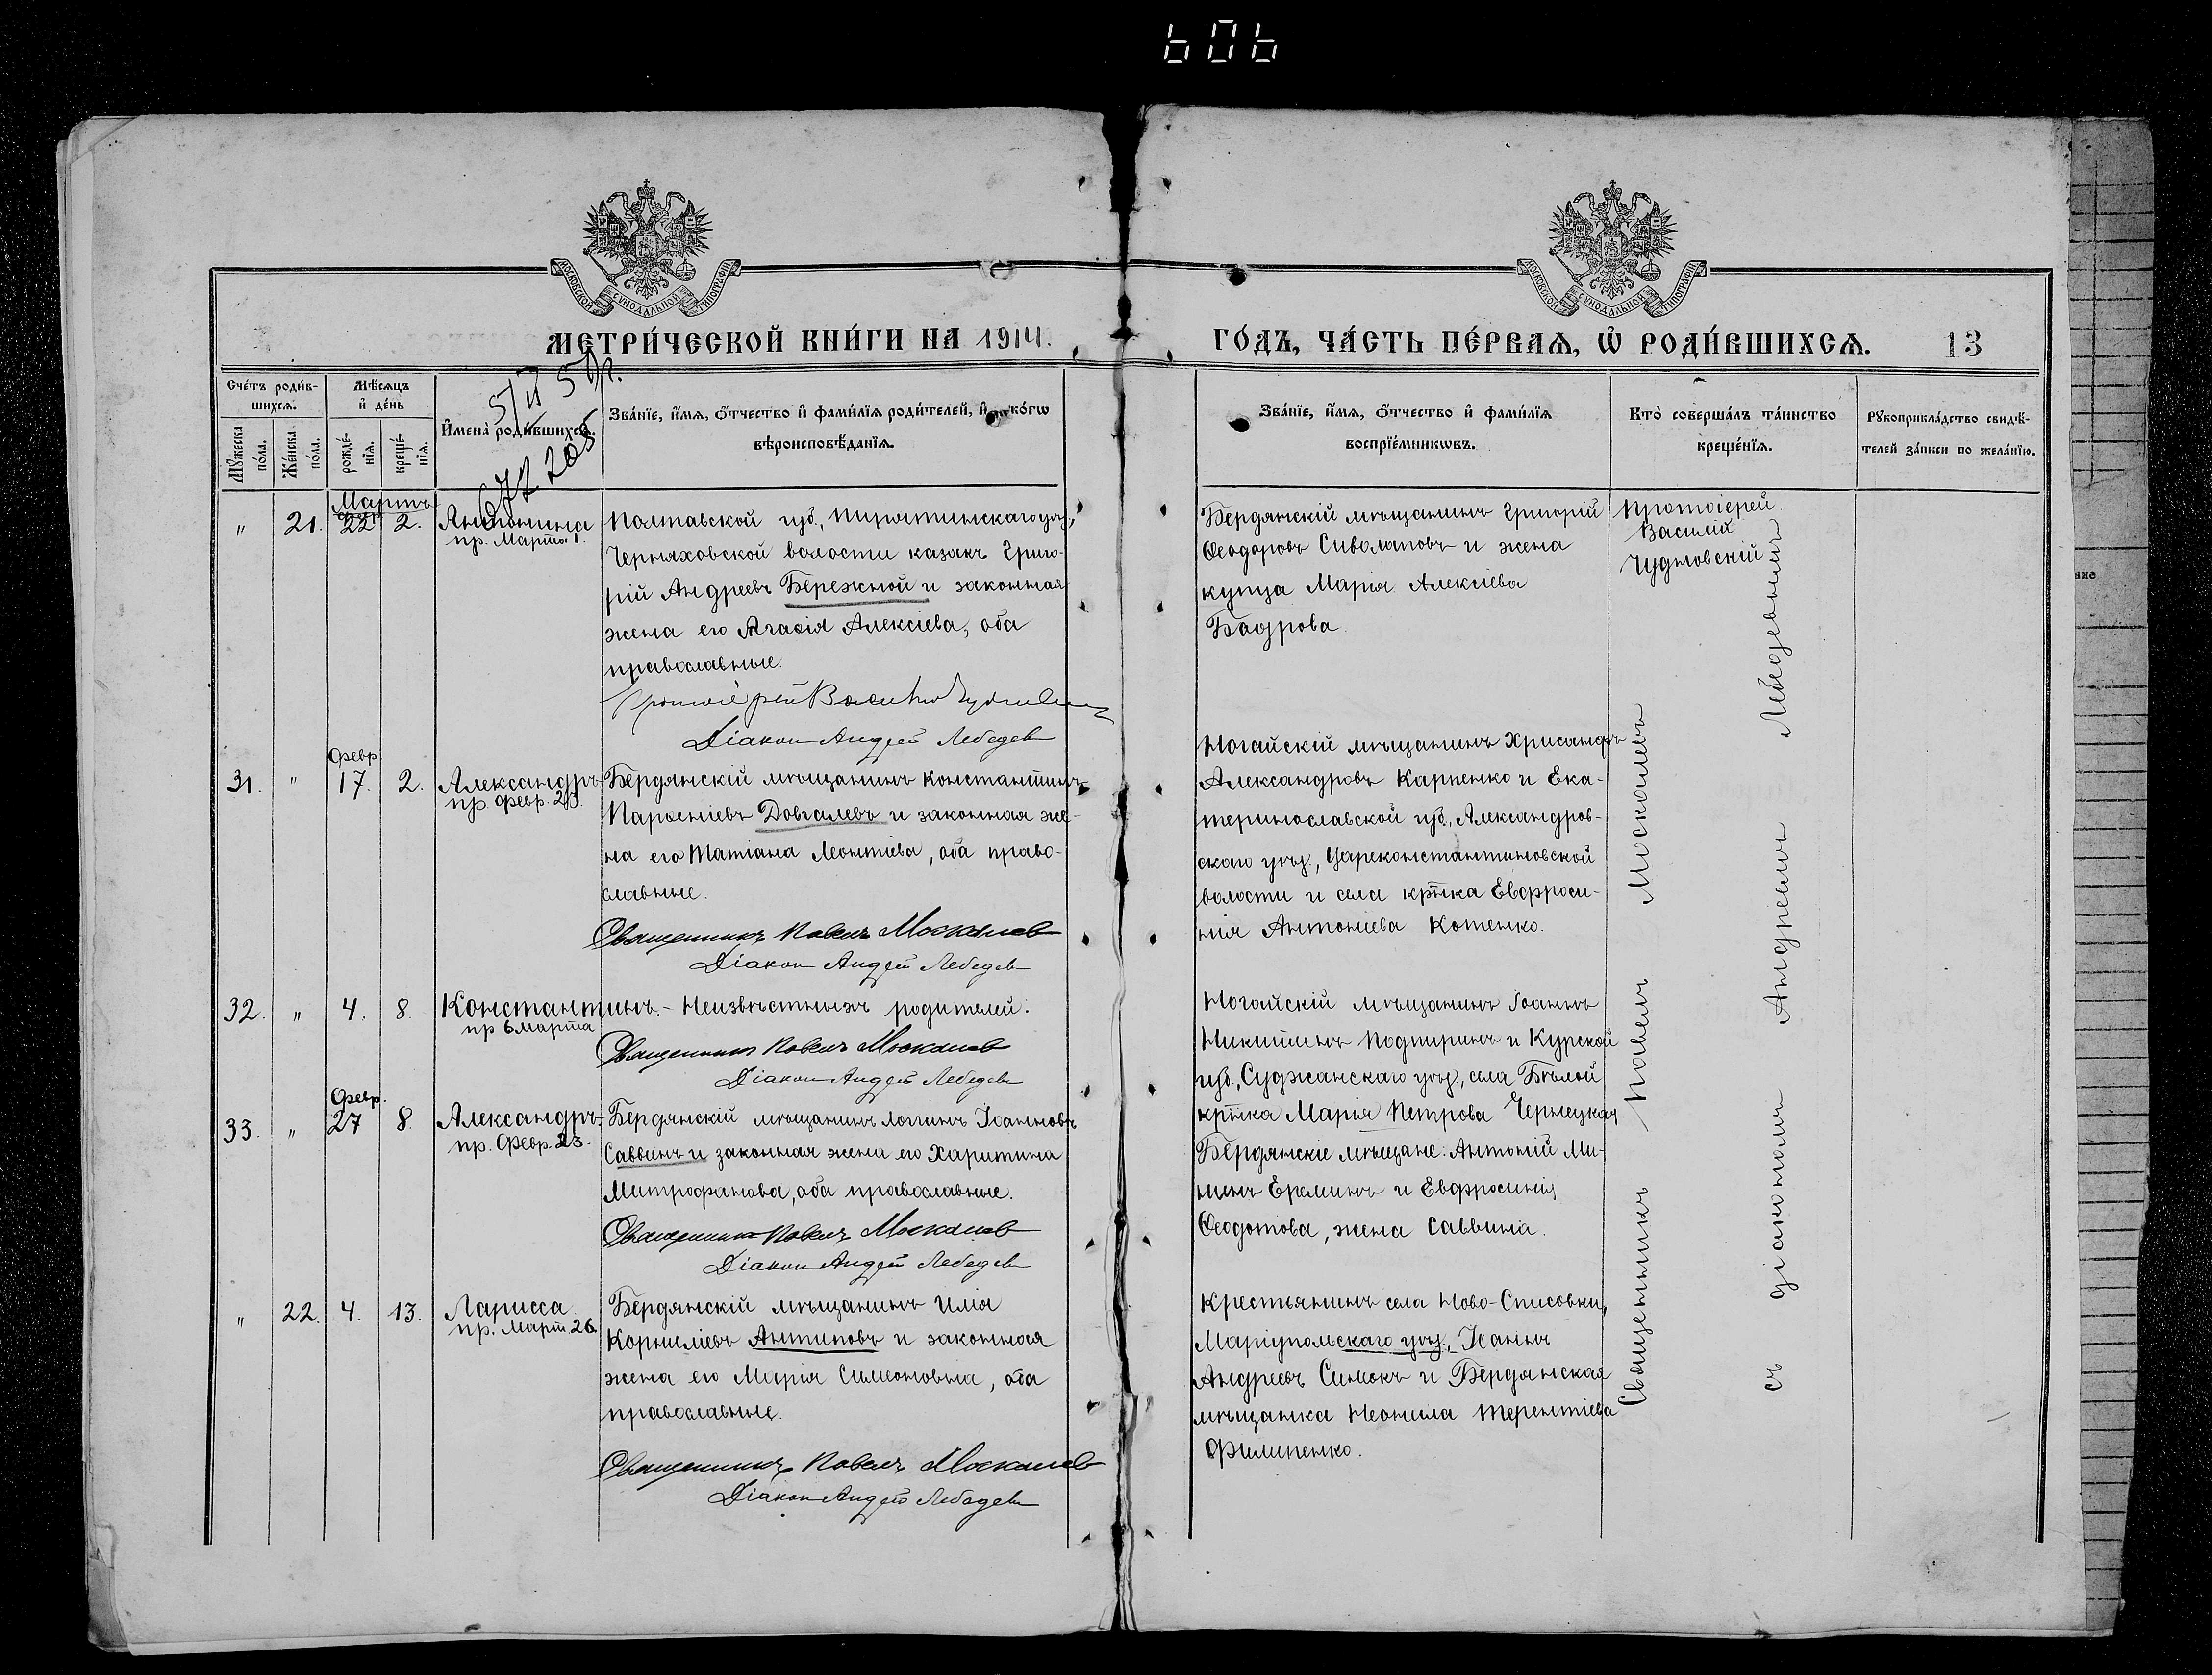 606
МОСКОВСКОЙ СѴНОДАЛЬНОЙ ТИПОГРАФІИ
МОСКОВСКОЙ СѴНОДАЛЬНОЙ ТИПОГРАФІИ
МЕТРИ́ЧЕСКОЙ КНИ́ГИ НА 1914.
ГО́ДЪ, ЧА́СТЬ ПЕ́РВАѦ, Ѡ҆ РОДИ́ВШИХСѦ. 13
5/II 50г.
Сче́тъ роди́в-
шихсѧ.
Мѣ́сѧцъ
и҆ де́нь
Мꙋ́жеска
по́ла.
Же́нска
по́ла.
рожде́-
нїѧ.
креще́-
нїѧ.
И҆мена̀ роди́вшихсѧ.
Зва́нїе, и҆́мѧ, ѻ҆́тчество и҆ фами́лїѧ роди́телей, и҆ како́гѡ
вѣроисповѣ́данїѧ.
Зва́нїе, и҆́мѧ, ѻ҆́тчество и҆ фами́лїѧ
воспрїе́мникѡвъ.
Кто̀ соверша́лъ та́инство
креще́нїѧ.
Рꙋкоприкла́дство свидѣ́-
телей за́писи по жела́нїю.
Мартъ
" 21. 22 2. Антонина
пр. Марта 1.
Полтавской губ., Пирятинскаго уѣз.,
Черняховской волости казакъ Григо-
рій Андреевъ Бережной и законная
жена его Агаѳія Алексіева, оба
православные.
Протоіерей Василій Чудновскій
Діакон Андрей Лебедев
Бердянскій мѣщанинъ Григорій
Ѳеодоровъ Сиволаповъ и жена
купца Марія Алексіева
Баурова.
Протоіерей
Василій
Чудновскій
Февр.
31. " 17. 2. Александръ
пр. Февр. 23.
Бердянскій мѣщанинъ Константинъ
Парѳеніевъ Довгалевъ и законная же-
на его Татіана Леонтіева, оба право-
славные.
Священникъ Павелъ Москалев
Діакон Андрей Лебедев
Ногайскій мѣщанинъ Хрисанфъ
Александровъ Карпенко и Ека-
теринославской губ., Александров-
скаго уѣз., Цареконстантиновской
волости и села кр͠нка Евфроси-
нія Антоніева Котенко.
32. " 4. 8. Константинъ.
пр 6 марта
- Неизвѣстныхъ родителей.
Священникъ Павелъ Москалев
Діакон Андрей Лебедев
Ногайскій мѣщанинъ Іоаннъ
Никитинъ Подпиринъ и Курской
губ., Суджанскаго уѣз., села Бѣлой
кр͠нка Марія Петрова Чернецкая
Февр.
33. " 27 8. Александръ
пр. Февр. 23.
Бердянскій мѣщанинъ Логинъ Іоанновъ
Саввинъ и законная жена его Харитина
Митрофанова, оба православные.
Священникъ Павелъ Москалев
Діакон Андрей Лебедев
Бердянскіе мѣщане: Антоній Ми-
нинъ Ереминъ и Евфросинія
Ѳеодотова, жена Саввина.
" 22. 4. 13. Ларисса
пр. Март. 26.
Бердянскій мѣщанинъ Илія
Корниліевъ Антиповъ и законная
жена его Марія Симеоновна, оба
православные.
Священникъ Павелъ Москалев
Діакон Андрей Лебедев
Крестьянинъ села Ново-Списовки,
Маріупольскаго уѣз., Іоаннъ
Андреевъ Симокъ и Бердянская
мѣщанка Неонила Терентіева
Филипенко.
Священникъ Павелъ Москалевъ
съ діакономъ Андреемъ Лебедевымъ